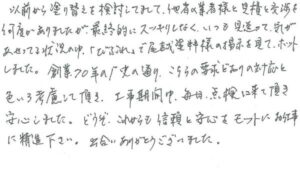 以前から塗り替えを検討してまして、他者の業者様と見積と交渉を
何度かありましたが最終的にスッキリしなく、いつも見送って、気が
あせってる状況の中、「ひろされ」で屋誠塗料様の掲示を見て、ホット
しました。創業70年の歴史の通り、こちらの要求どおりの対応と
色いろ考慮して頂き、工事期間中、毎日、点検に来て頂き
安心しました。どうぞ、これからも信頼と安心をモットにお仕事
に精進下さい。出会いありがとうございました。